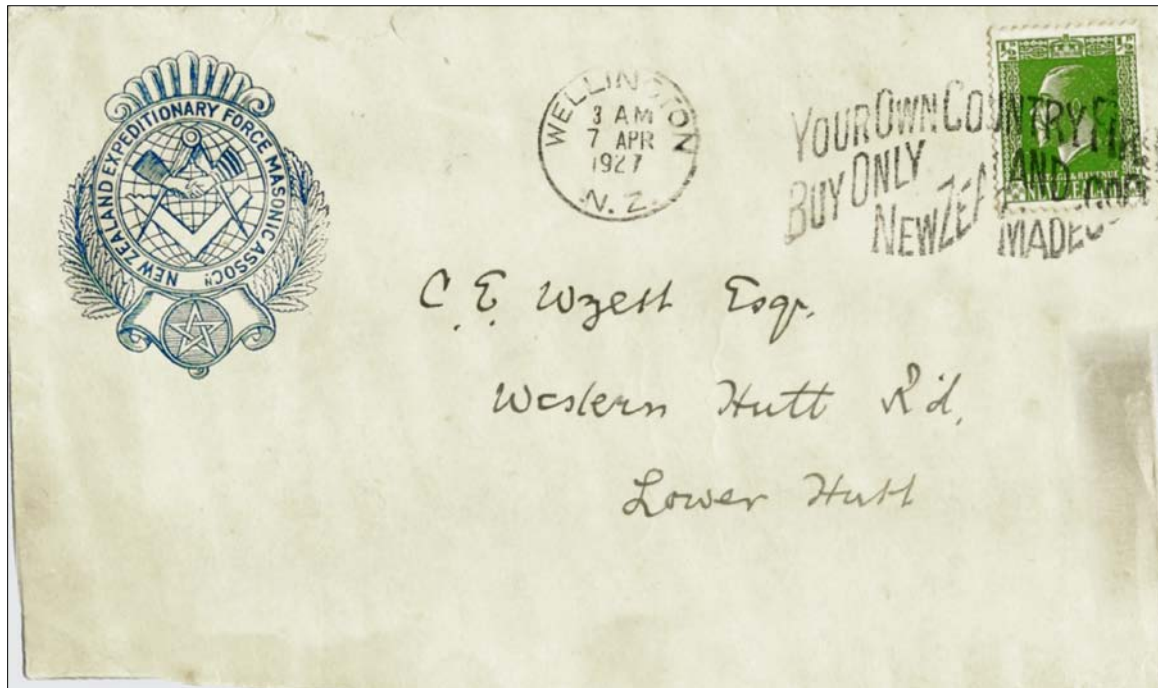 NEW ZEALAND EXPEDITIONARY FORCE MASONIC ASSOCN
WELLINGTON
3 AM
7 APR
1927
N. Z.
YOUR OWN COUNTRY
BUY ONLY AND
NEW ZEA MADE
½ ½
C. E. Wyett Esqr.
Western Hutt Rd,
Lower Hutt